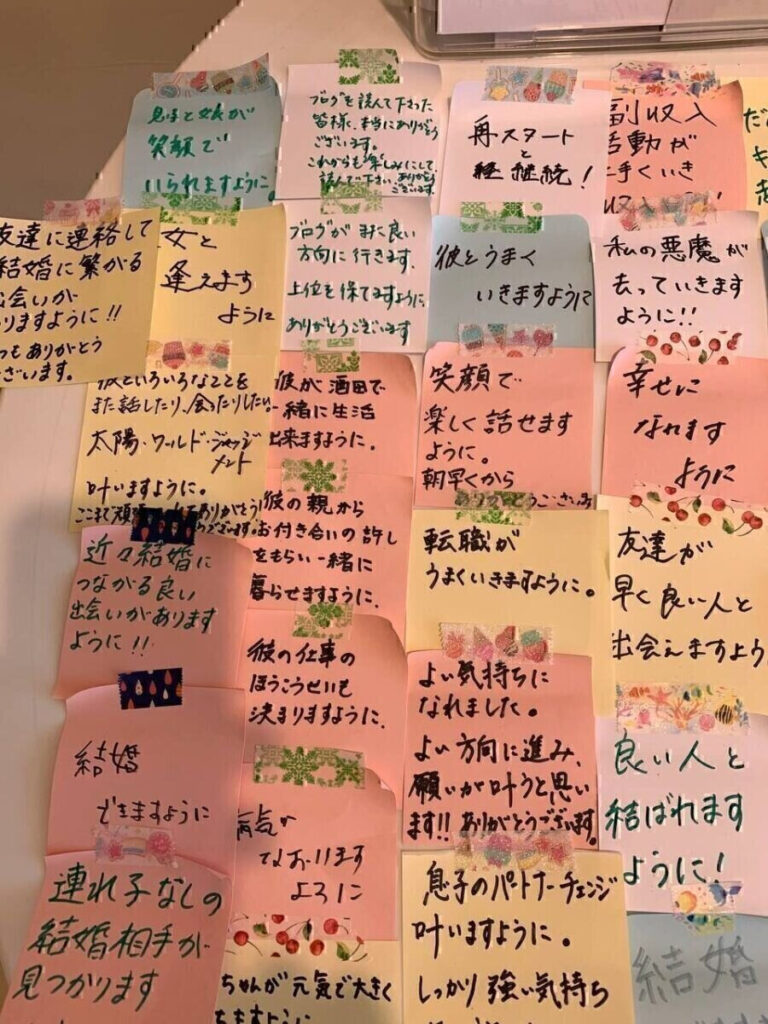 息子と娘が
笑顔で
いられますように。
ブログを読んで下さった
皆様、本当にありがとう
ございます。
これからも楽しみにして
読んで下さい。ありがとう
ございます
再スタート
と
継続!
副収入
活動が
上手くいき
友達に連絡して
結婚に繋がる
出会いが
ありますように!!
いつもありがとう
ございます。
女と
逢えます
ように
ブログがまた良い
方向に行きます。
上位を保てますように。
ありがとうございます
彼とうまく
いきますように
私の悪魔が
去っていきます
ように!!
彼といろいろなことを
また話したり、会ったりしたい。
太陽・ワールド・ジャッジ
メント
叶いますように。
彼が酒田で
一緒に生活
出来ますように。
笑顔で
楽しく話せます
ように。
朝早くから
ありがとうございます
幸せに
なれます
ように
彼の親から
お付き合いの許し
をもらい一緒に
暮らせますように。
転職が
うまくいきますように。
友達が
早く良い人と
出会えますよう
近々結婚に
つながる良い
出会いがあります
ように!!
彼の仕事の
ほうこうせいも
決まりますように。
よい気持ちに
なれました。
よい方向に進み、
願いが叶うと思い
ます!! ありがとうございます。
良い人と
結ばれます
ように!
結婚
できますように
病気が
なおります
ように
連れ子なしの
結婚相手が
見つかります
ちゃんが元気で大きく
ますように
息子のパートナーチェンジ
叶いますように。
しっかり強い気持ち
結婚